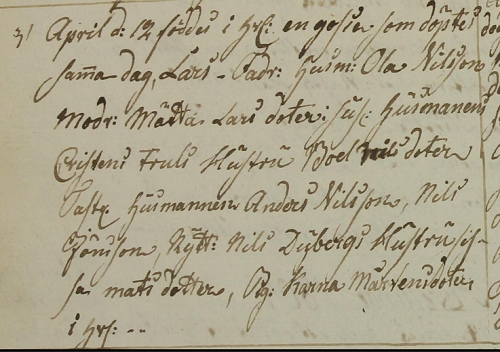 3/ April d: 12 föddes i Hrl: en gosse som döptes
sam̄a dag, Lars. Fadr: Husm: Ola Nilsson
Modr: Mätta Lars doter; Sus: Husmanens
Cristens Truls Hustru Boel Nils doter
Fastr. Husmannen Anders Nilsson, Nils
Jönsson, Rytt: Nils Dubergs Hustru Sis-
sa mats dotter, Pig: Karna Mårtensdoter
i Hrl: --